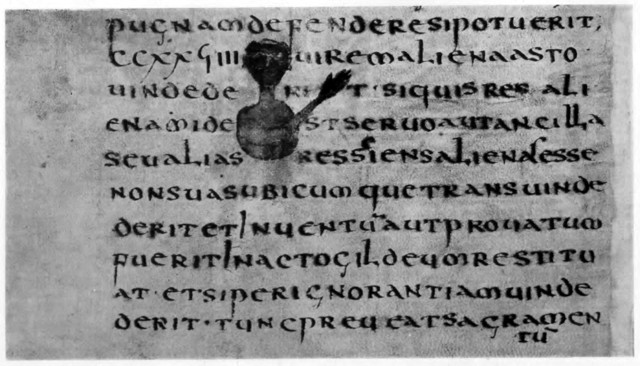 pugnam defendere si potuerit;
CCXXϚIII ui rem aliena asto
uindede rit · si quis res ali
enam ide st seruo aut ancilla
seu alias res sciens aliena esse
non sua subicumque transuinde
derit et inuentū aut prouatum
fuerit in actogild eum restitu
at · et si per ignorantiam uinde
derit · tunc preueat sacramen
tū